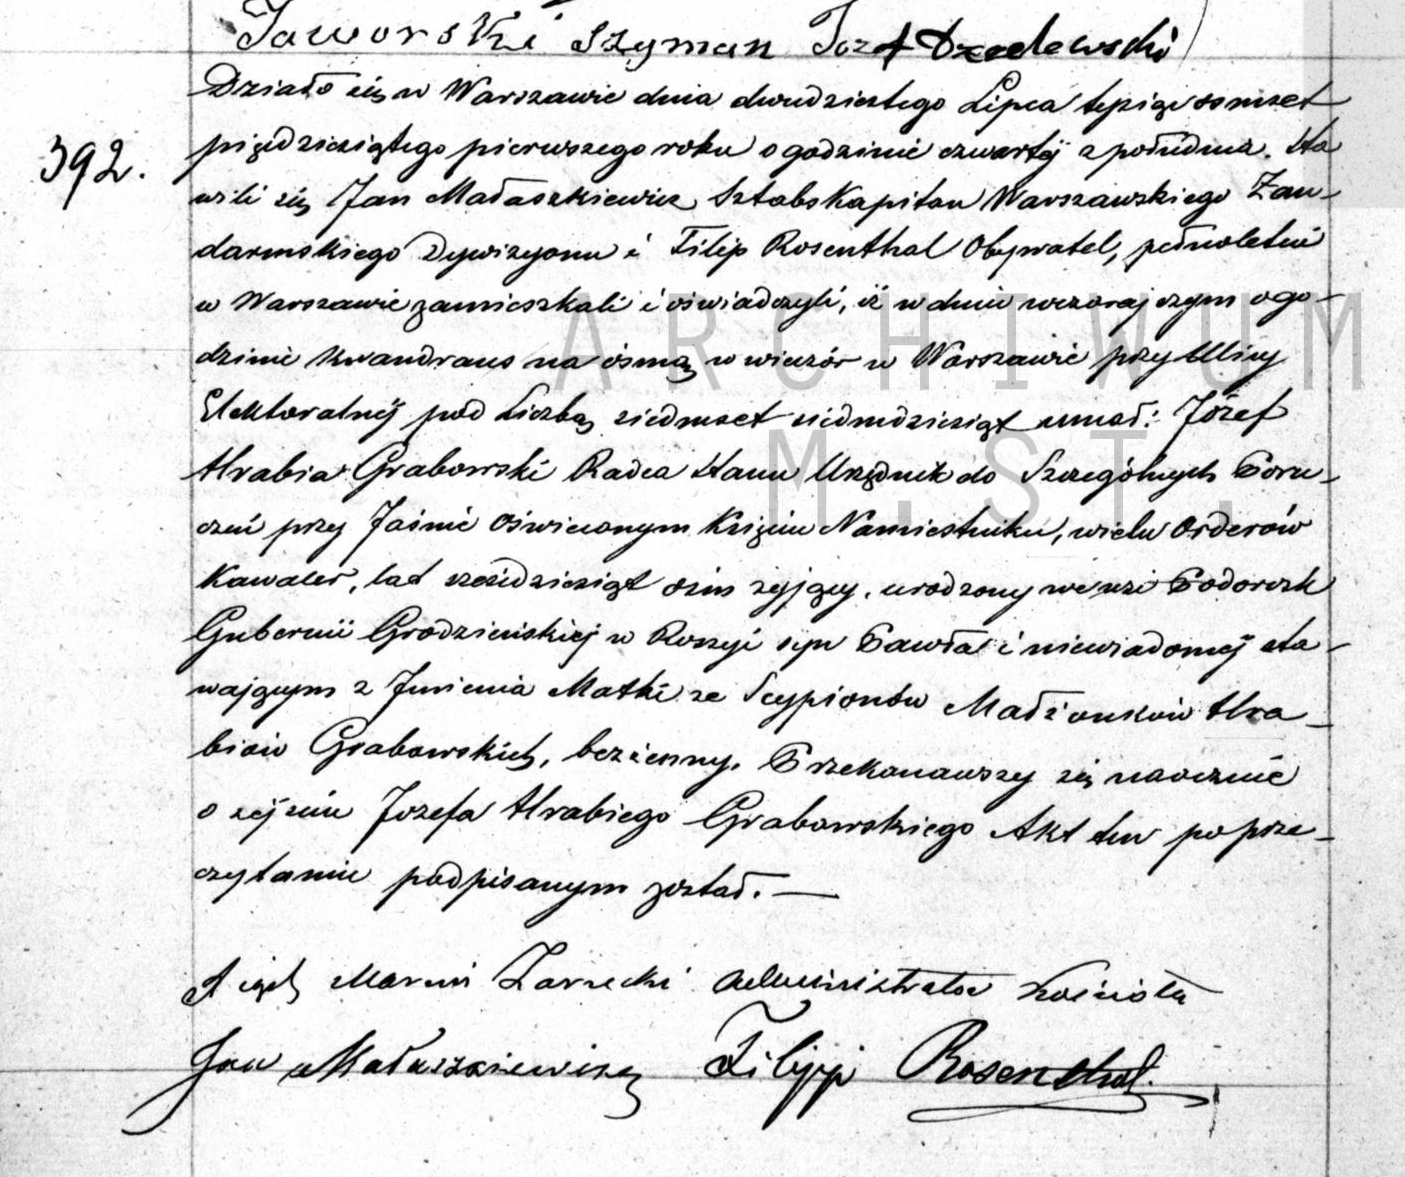 Jaworski Szyman Józef Dzedewski
Działo się w Warszawie dnia dwudziestego Lipca tysiąc osmset
392. pięćdziesiątego pierwszego roku o godzinie czwartéj z południa. Sta
wili się Jan Małaszkiewicz Sztabs Kapitan Warszawskiego Żan-
darmskiego Dywizyonu i Filip Rosenthal Obywatel, pełnoletni
w Warszawie zamieszkali i oświadczyli, iż w dniu wczorajszym o go-
dzinie kwandrans na ósmą w wieczór w Warszawie przy Ulicy
Elektoralnéj pod Liczbą siedmset siedmdziesiąt umarł: Józef
Hrabia Grabowski Radca Stanu Urzędnik do Szczególnych Poru-
czeń przy Jaśnie Oświeconym Księciu Namiestniku, wielu Orderów
Kawaler, lat sześćdziesiąt ośm żyjący, urodzony we wsi Podorosk
Gubernii Grodzieńskiej w Rossyi syn Pawła i niewiadoméj sta-
wającym z Imienia Matki ze Scypionów Małżonków Hra-
biów Grabowskich, bezżenny. Przekonawszy się naocznie
o zejściu Jozefa Hrabiego Grabowskiego Akt ten po prze-
czytaniu podpisanym został. —
X iądz Marcin Zarzecki Administrator kościoła
Jan Małaszkiewicz Filipp Rosenthal.
ARCHIWUM
M. ST.